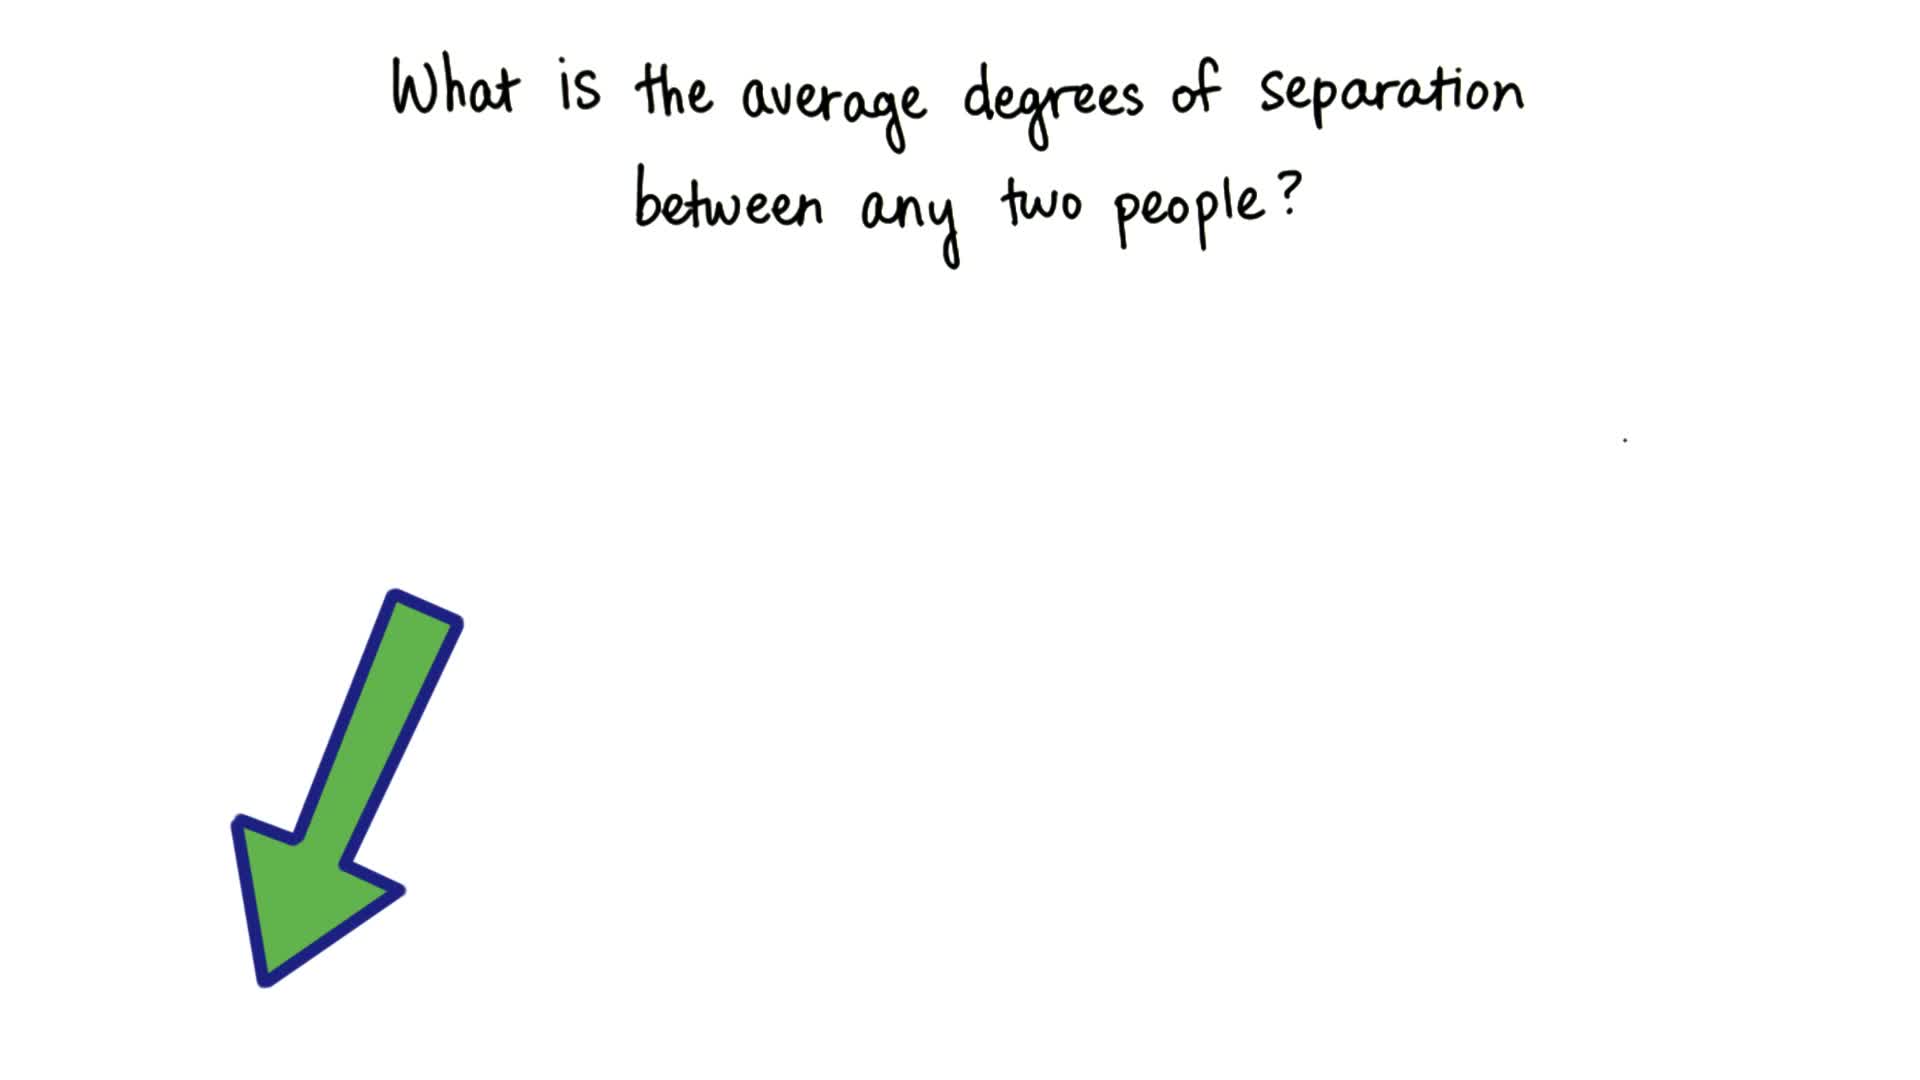 What is the average degrees of separation
between any two people?